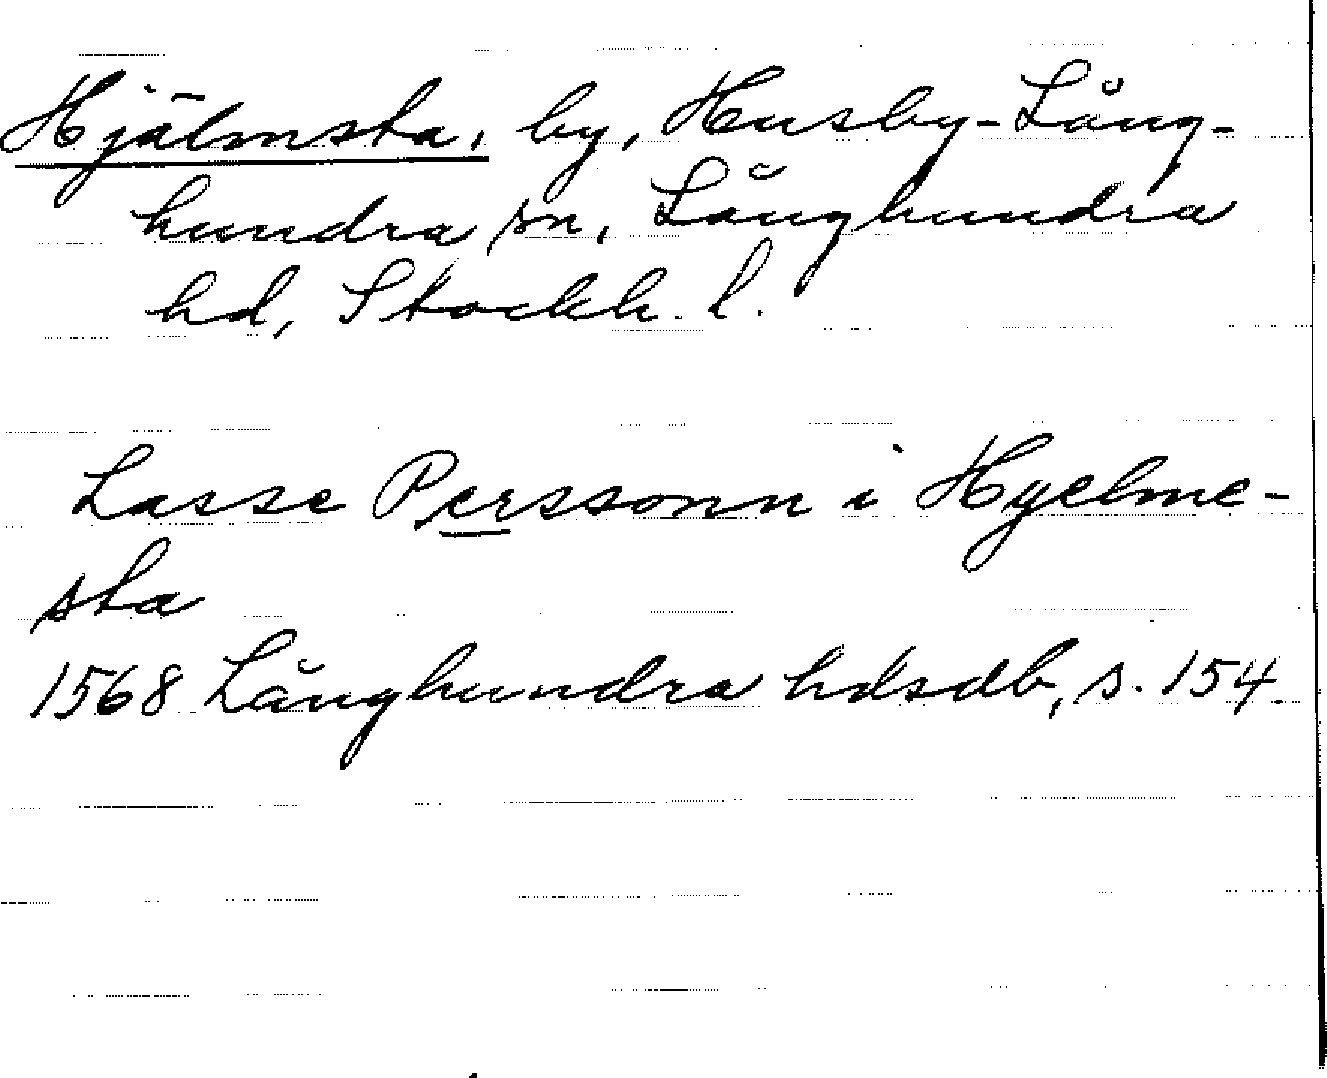 Hjälmsta, by, Husby-Lång-
hundra sn, Långhundra
hd, Stockh. l.
Lasse Perssonn i Hyelme-
sta
1568 Långhundra hdsdb, s. 154.